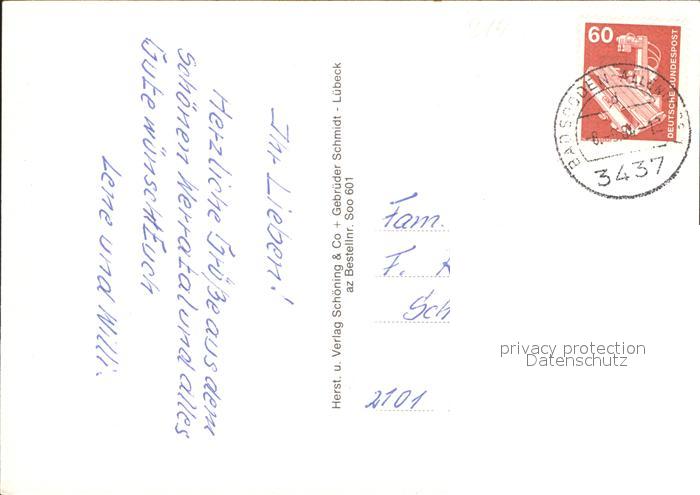 Ihr Lieben!
Herzliche Grüße aus dem
schönen Werratal und alles
Gute wünscht Euch
Lene und Willi.
Herst. u. Verlag Schöning & Co + Gebrüder Schmidt - Lübeck
az Bestellnr. Soo 601
60
DEUTSCHE BUNDESPOST
BAD SOODEN-ALLEN
3437
Fam.
F. K
Sch
2101
privacy protection
Datenschutz